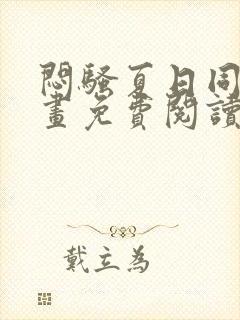 悶騷夏日同
畫免費閱讀
戴立為